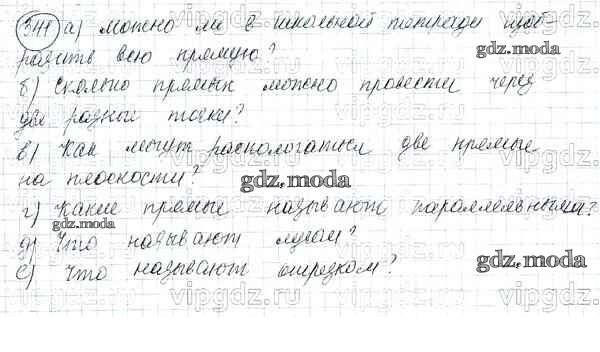 341 а) можно ли в школьной тетради изоб-
разить всю прямую?
б) Сколько прямых можно провести через
две разные точки?
в) Как могут распологаться две прямые
на плоскости?
г) Какие прямые называют параллельными?
д) Что называют лучом?
е) Что называют отрезком?
gdz.moda
gdz.moda
gdz.moda
gdz.moda
vipgdz.ru